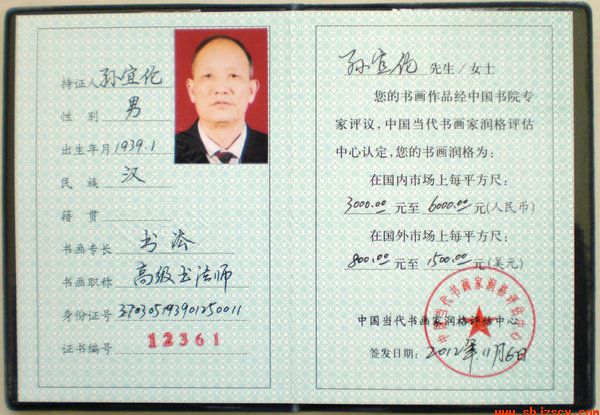 持证人 孙宜伦
性别 男
出生年月 1939.1
民族 汉
籍贯
书画专长 书法
书画职称 高级书法师
身份证号 370305193901250011
证书编号 12361
孙宜伦 先生/女士
您的书画作品经中国书院专
家评议,中国当代书画家润格评估
中心认定,您的书画润格为:
在国内市场上每平方尺:
3000.00 元至 6000.00 元(人民币)
在国外市场上每平方尺:
800.00 元至 1500.00 元(美元)
中国当代书画家润格评估中心
中国当代书画家润格评估中心
签发日期: 2012年11月6日
www.shjzscx.com